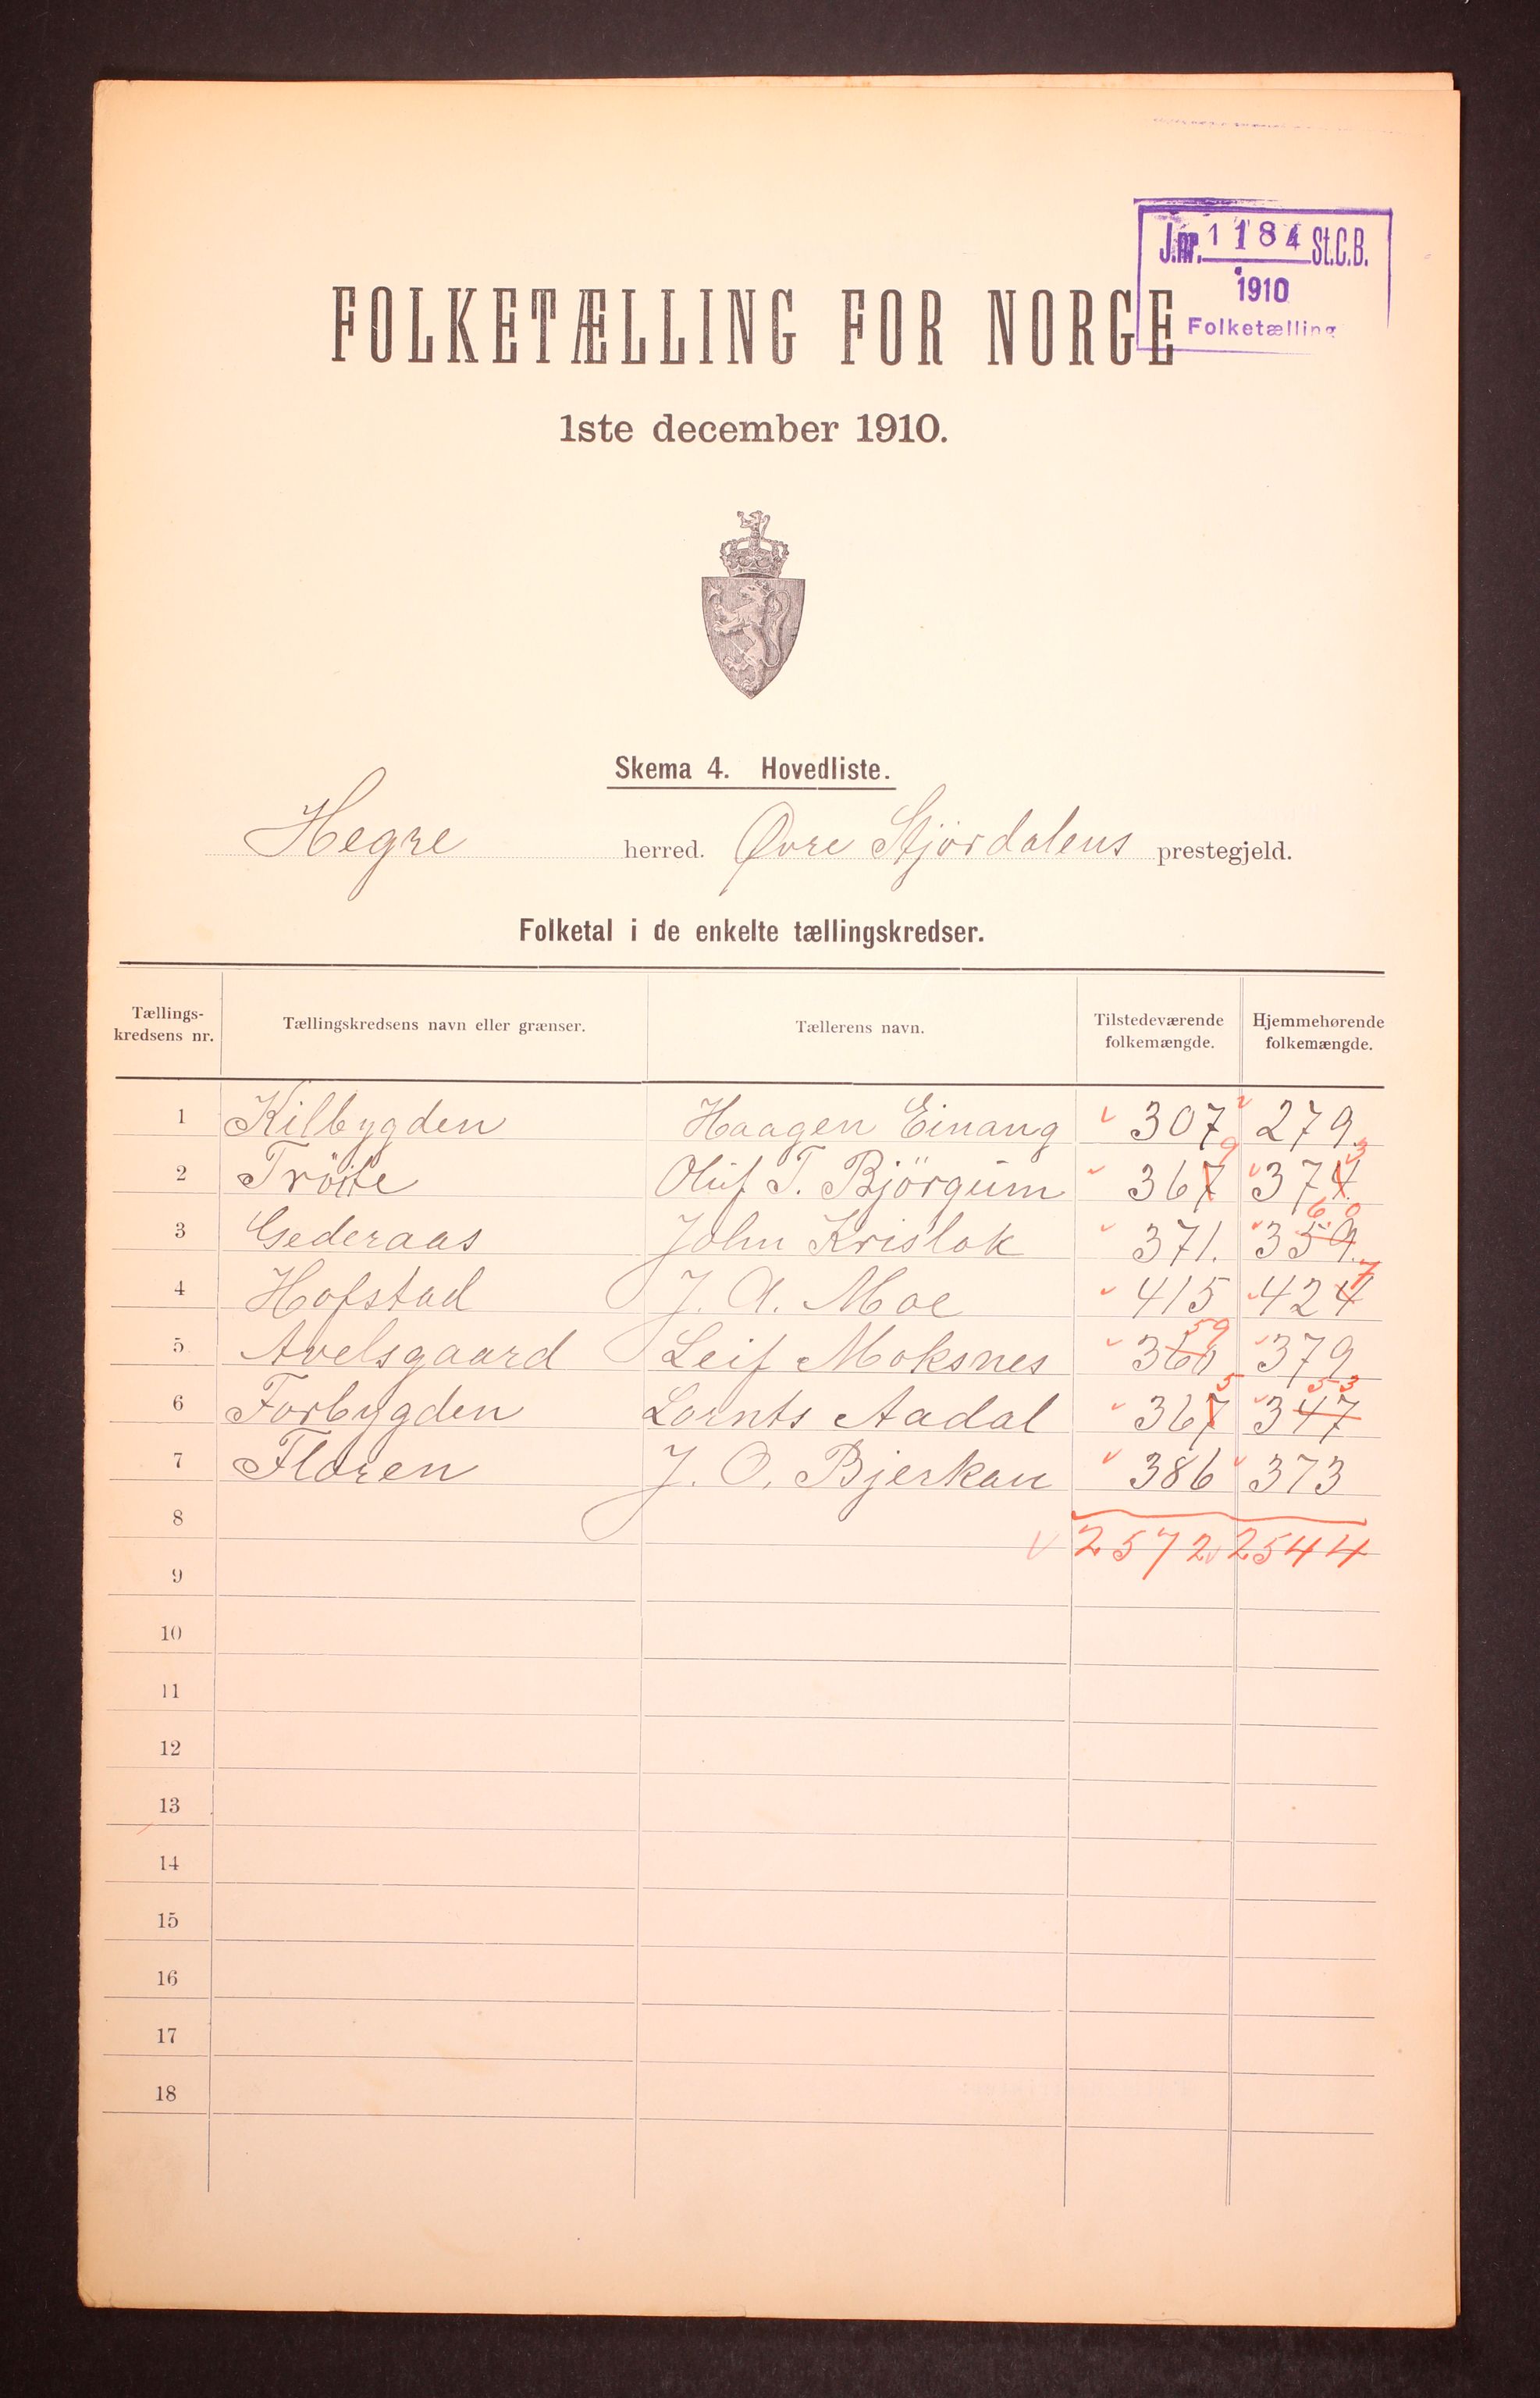 J.nr. 1184 St.C.B.
1910
Folketælling
FOLKETÆLLING FOR NORGE
1ste december 1910.
Skema 4. Hovedliste.
Hegre herred. Øvre Stjördalens prestegjeld.
Folketal i de enkelte tællingskredser.
Tællings-kredsens nr. Tællingskredsens navn eller grænser. Tællerens navn. Tilstedeværende folkemængde. Hjemmehørende folkemængde.
1 Kilbygden Haagen Einang 307 279
2 Tröite Oluf T. Björgum 367 9 374 3
3 Gederaas John Krislok 371. 359. 60
4 Hofstad J. A. Moe 415 424 7
5 Avelsgaard Leif Moksnes 360 59 379
6 Forbygden Lornts Aadal 367 5 347 53
7 Floren J. O. Bjerkan 386 373
8
2572 2544
9
10
11
12
13
14
15
16
17
18